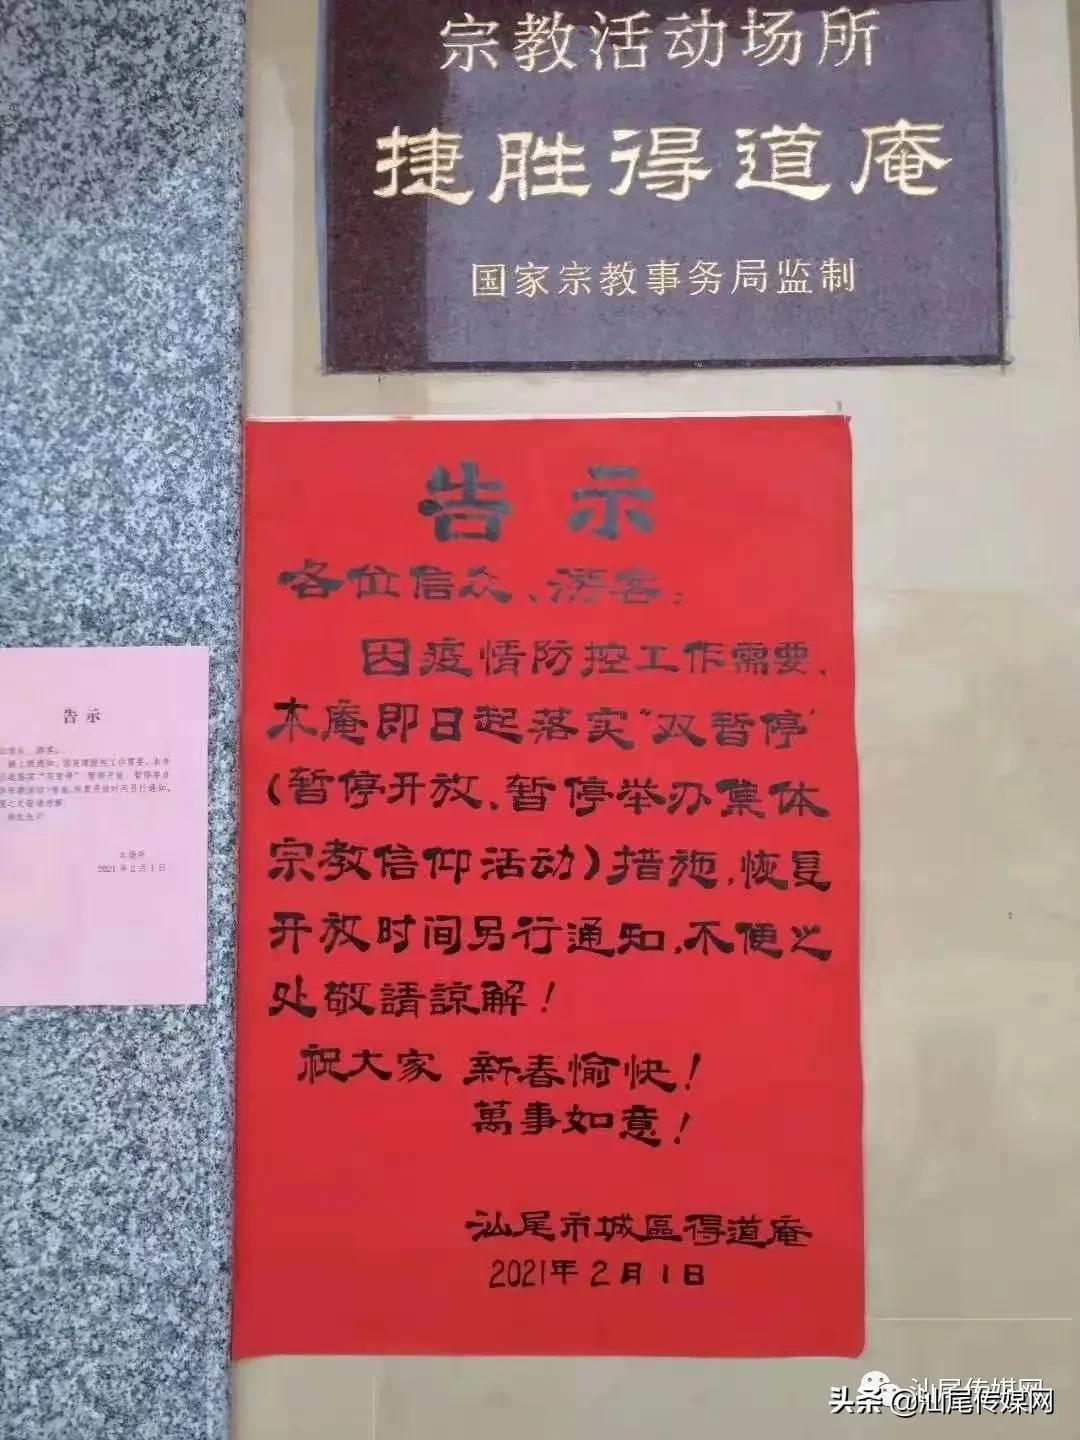 宗教活动场所
捷胜得道庵
国家宗教事务局监制
告示
各位信众、游客：
因疫情防控工作需要，
本庵即日起落实“双暂停”
（暂停开放、暂停举办集体
宗教信仰活动）措施，恢复
开放时间另行通知，不便之
处敬請諒解！
祝大家 新春愉快！
萬事如意！
汕尾市城區得道庵
2021年2月1日
告示
2021年2月1日
汕尾传媒网
头条@汕尾传媒网